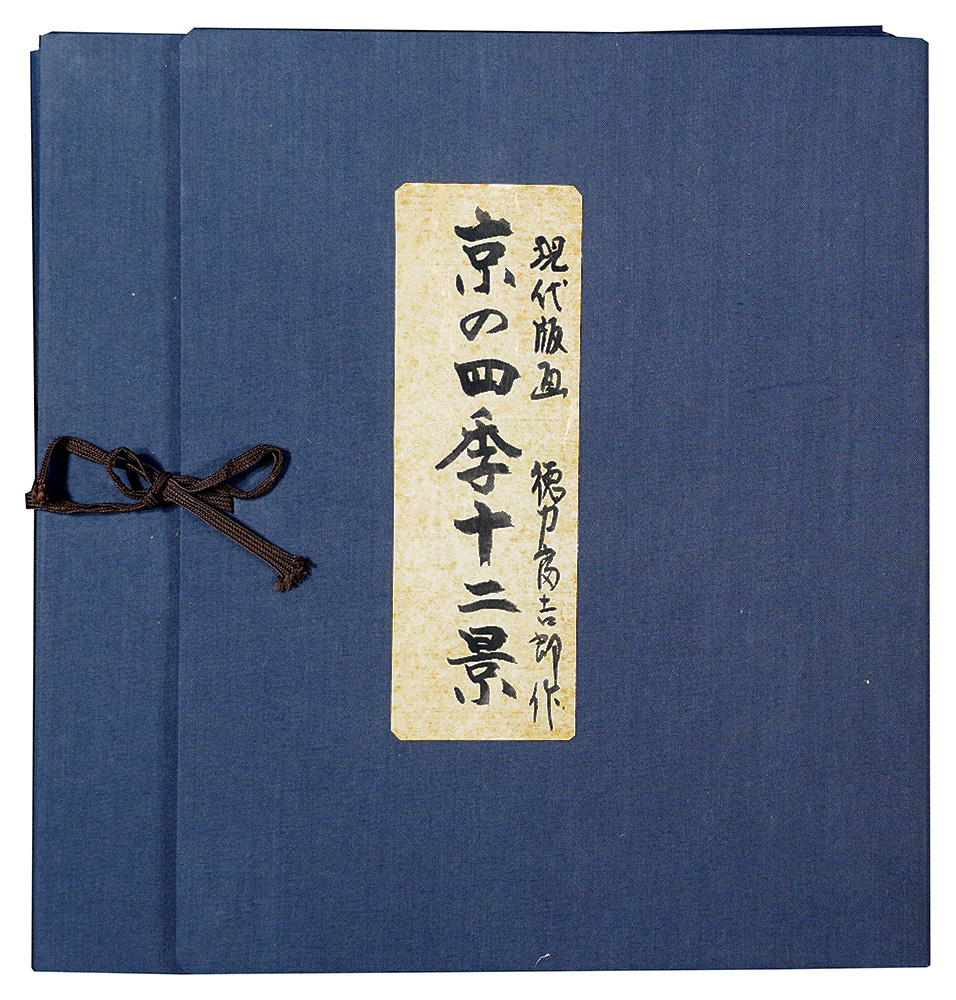 現代版画 徳力富吉郎作
京の四季十二景